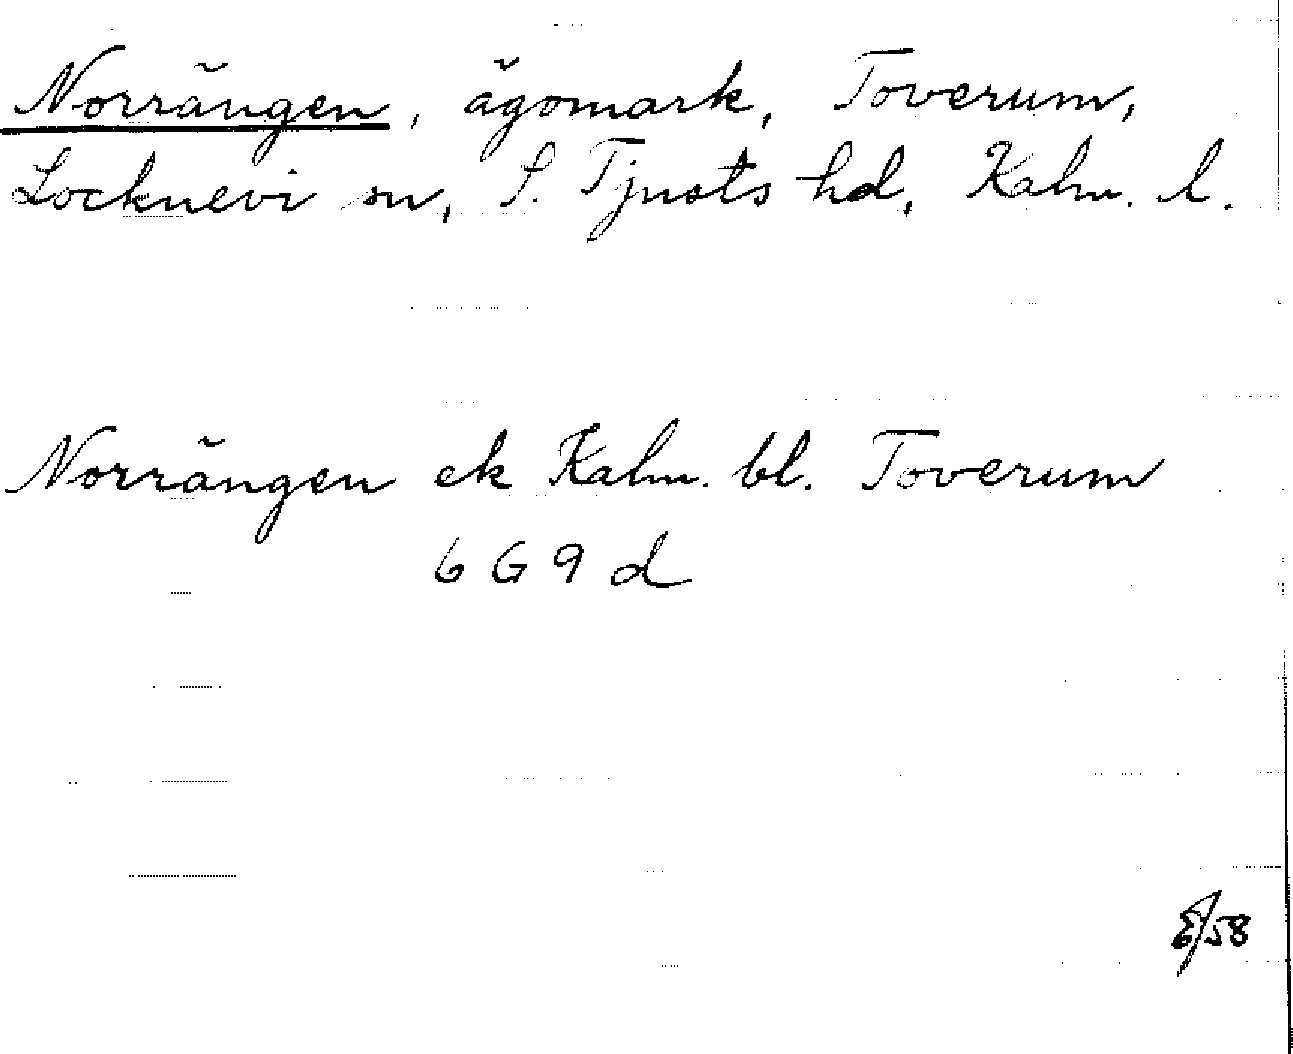 Norrängen, ägomark, Toverum,
Locknevi sn, S. Tjusts hd, Kalm. l.
Norrängen ek Kalm. bl. Toverum
6 G 9 d
/58